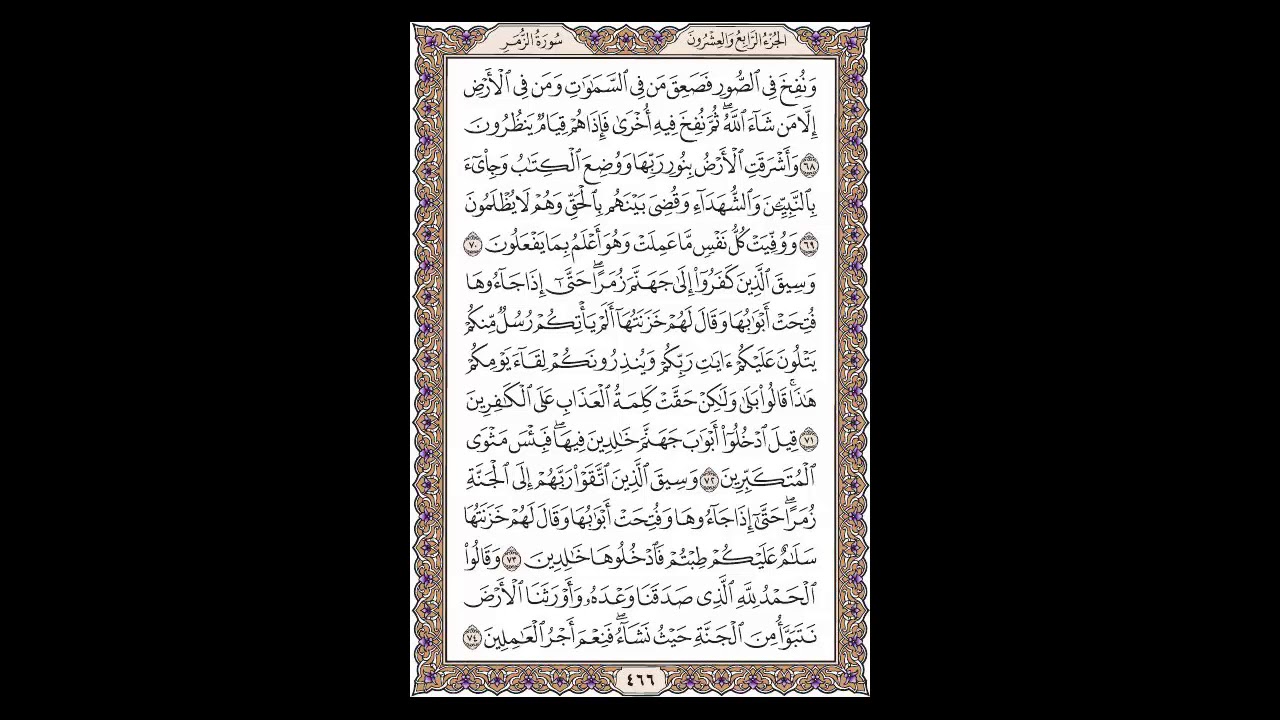 الجُزْءُ الرَّابِعُ وَالعِشْرُونَ
سُورَةُ الزُّمَرِ
وَنُفِخَ فِي ٱلصُّورِ فَصَعِقَ مَن فِي ٱلسَّمَٰوَٰتِ وَمَن فِي ٱلْأَرْضِ
إِلَّا مَن شَآءَ ٱللَّهُۖ ثُمَّ نُفِخَ فِيهِ أُخْرَىٰ فَإِذَا هُمْ قِيَامٌ يَنظُرُونَ
٦٨ وَأَشْرَقَتِ ٱلْأَرْضُ بِنُورِ رَبِّهَا وَوُضِعَ ٱلْكِتَٰبُ وَجِاْيٓءَ
بِٱلنَّبِيِّـۧنَ وَٱلشُّهَدَآءِ وَقُضِيَ بَيْنَهُم بِٱلْحَقِّ وَهُمْ لَا يُظْلَمُونَ
٦٩ وَوُفِّيَتْ كُلُّ نَفْسٍ مَّا عَمِلَتْ وَهُوَ أَعْلَمُ بِمَا يَفْعَلُونَ ٧٠
وَسِيقَ ٱلَّذِينَ كَفَرُوٓاْ إِلَىٰ جَهَنَّمَ زُمَرًاۖ حَتَّىٰٓ إِذَا جَآءُوهَا
فُتِحَتْ أَبْوَٰبُهَا وَقَالَ لَهُمْ خَزَنَتُهَآ أَلَمْ يَأْتِكُمْ رُسُلٌ مِّنكُمْ
يَتْلُونَ عَلَيْكُمْ ءَايَٰتِ رَبِّكُمْ وَيُنذِرُونَكُمْ لِقَآءَ يَوْمِكُمْ
هَٰذَاۚ قَالُواْ بَلَىٰ وَلَٰكِنْ حَقَّتْ كَلِمَةُ ٱلْعَذَابِ عَلَى ٱلْكَٰفِرِينَ
٧١ قِيلَ ٱدْخُلُوٓاْ أَبْوَٰبَ جَهَنَّمَ خَٰلِدِينَ فِيهَاۖ فَبِئْسَ مَثْوَى
ٱلْمُتَكَبِّرِينَ ٧٢ وَسِيقَ ٱلَّذِينَ ٱتَّقَوْاْ رَبَّهُمْ إِلَى ٱلْجَنَّةِ
زُمَرًاۖ حَتَّىٰٓ إِذَا جَآءُوهَا وَفُتِحَتْ أَبْوَٰبُهَا وَقَالَ لَهُمْ خَزَنَتُهَا
سَلَٰمٌ عَلَيْكُمْ طِبْتُمْ فَٱدْخُلُوهَا خَٰلِدِينَ ٧٣ وَقَالُواْ
ٱلْحَمْدُ لِلَّهِ ٱلَّذِي صَدَقَنَا وَعْدَهُۥ وَأَوْرَثَنَا ٱلْأَرْضَ
نَتَبَوَّأُ مِنَ ٱلْجَنَّةِ حَيْثُ نَشَآءُۖ فَنِعْمَ أَجْرُ ٱلْعَٰمِلِينَ ٧٤
٤٦٦